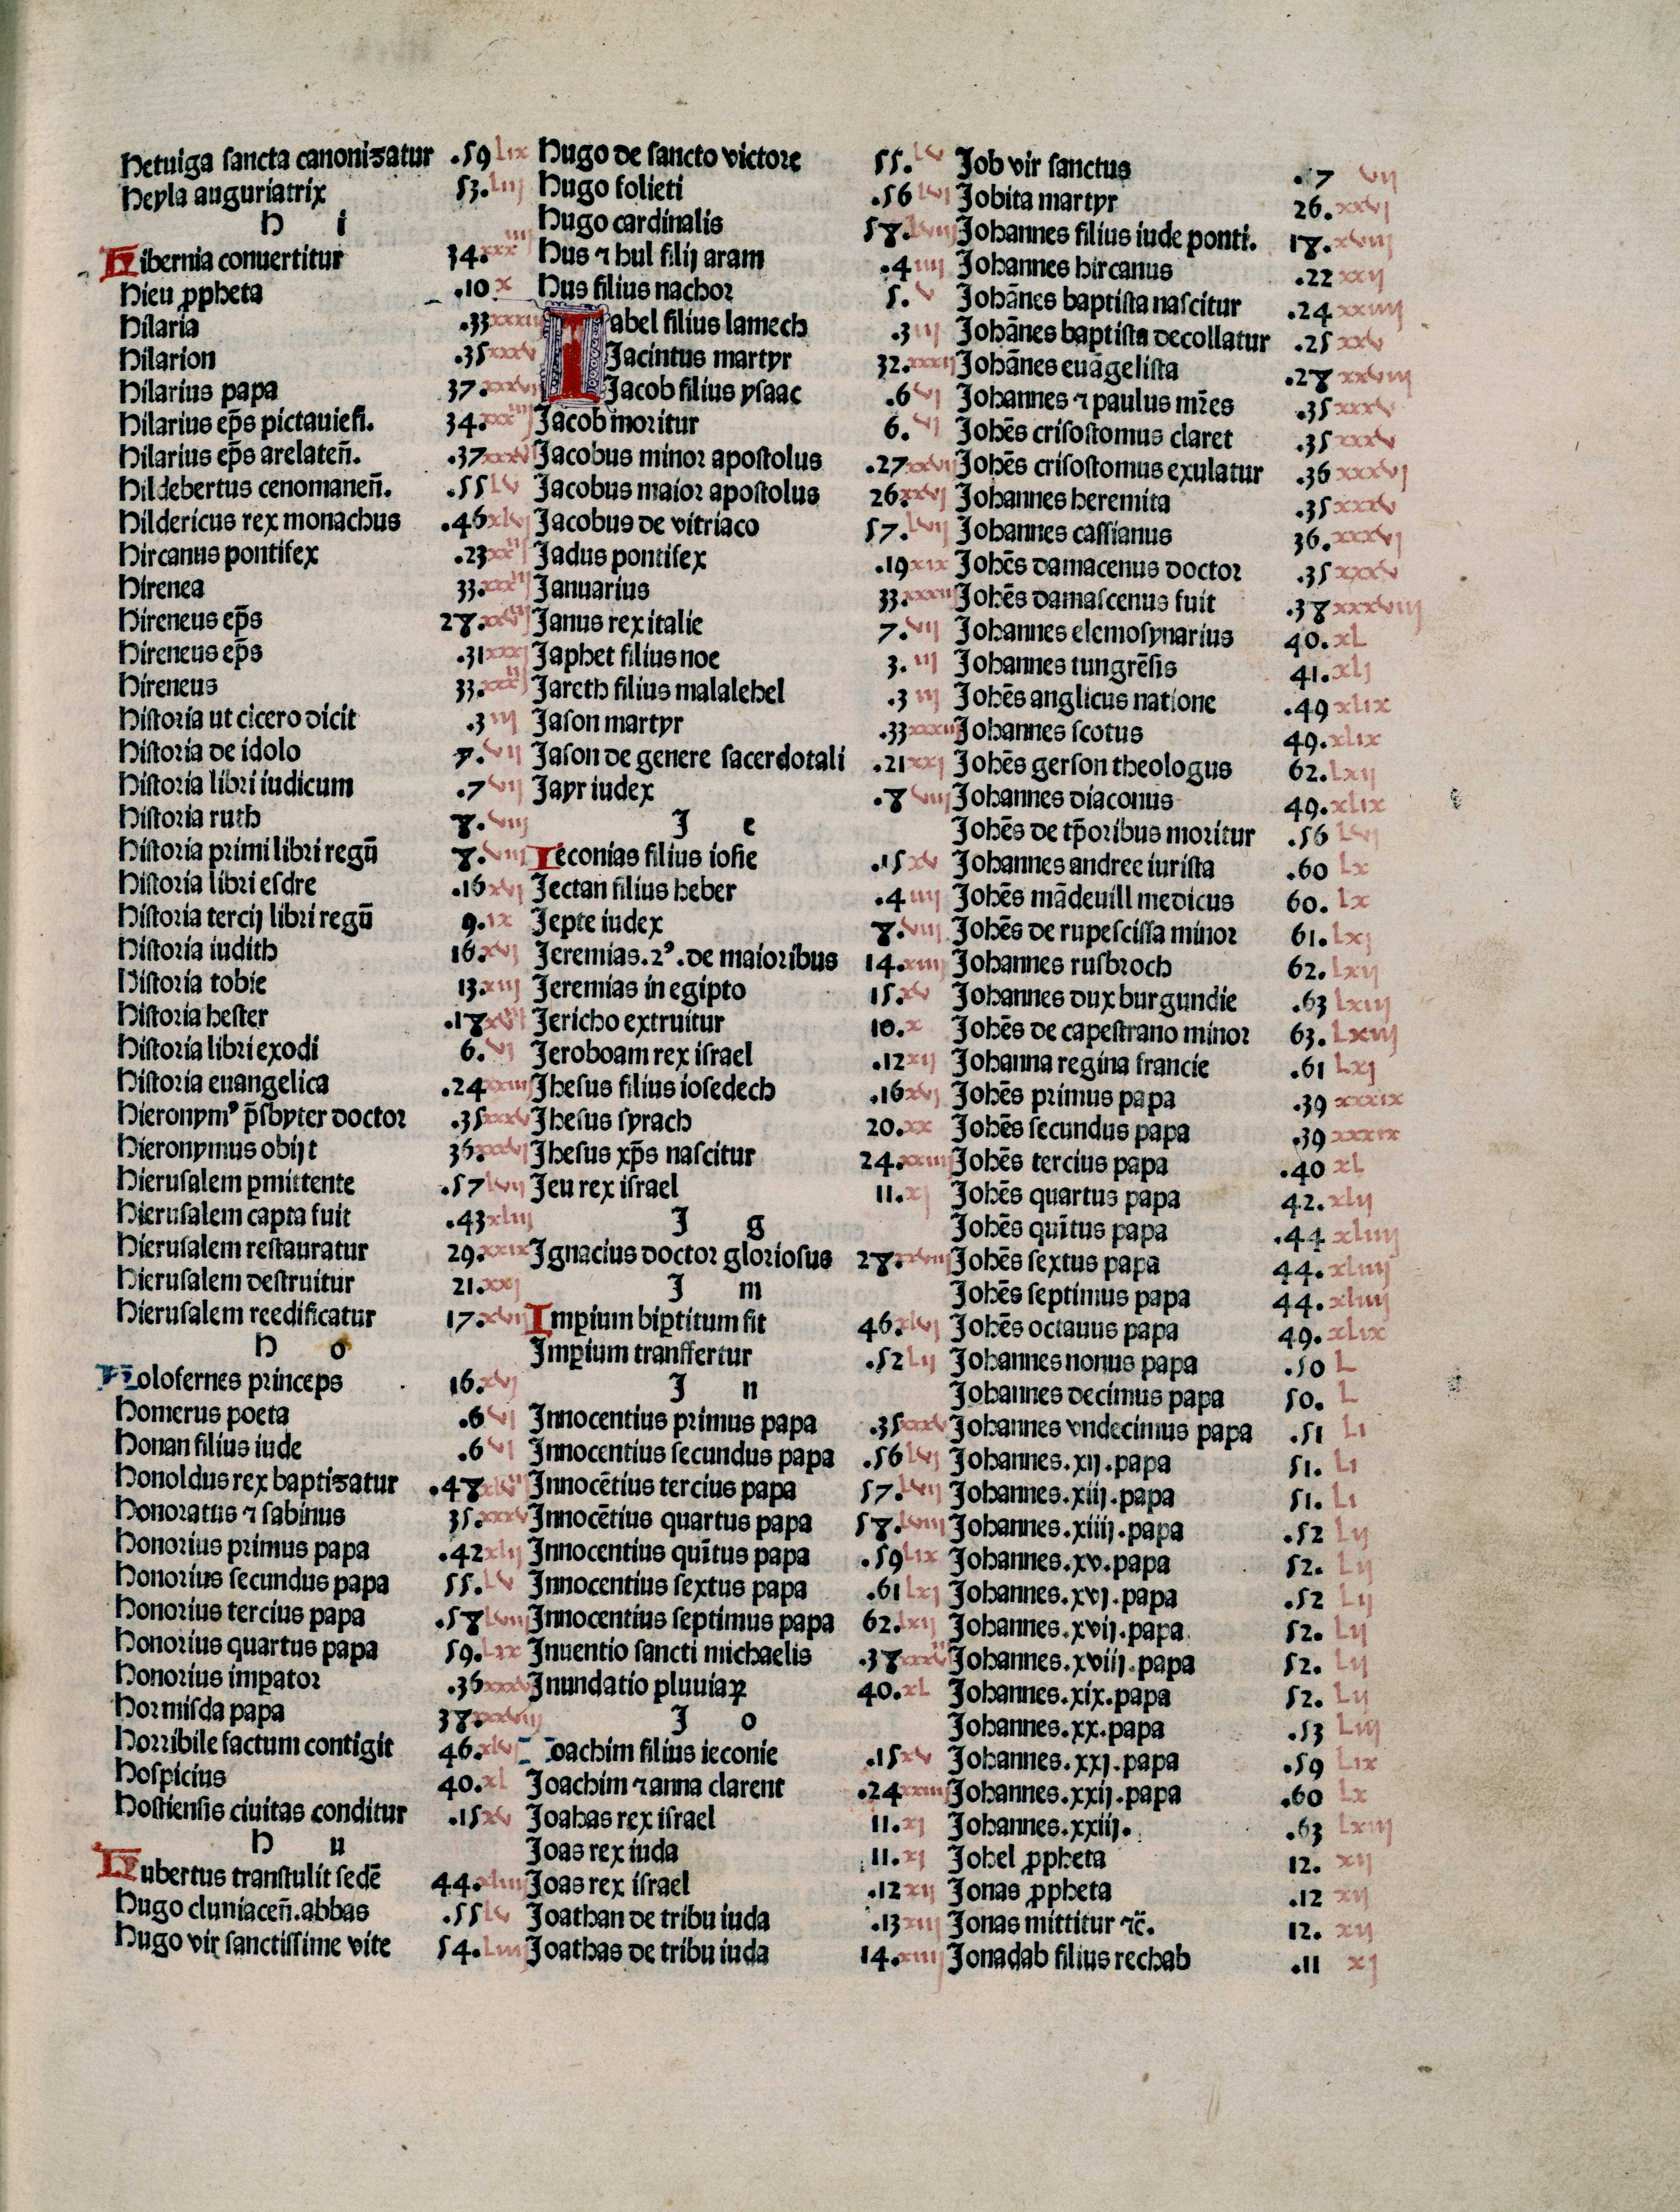 Hetuiga sancta canonizatur .59 lix
Heyla auguriatrix 53. liij
H i
Hibernia conuertitur 34. xxxiiij
Hieu ꝓpheta .10 x
Hilaria .33 xxxiij
Hilarion .35 xxxv
Hilarius papa 37. xxxvij
Hilarius ep̄s pictauieñ. 34. xxxiiij
Hilarius ep̄s arelateñ. .37 xxxvij
Hildebertus cenomaneñ. .55 lv
Hildericus rex monachus .46 xlvj
Hircanus pontifex .23 xxiij
Hirenea 33. xxxiij
Hireneus ep̄s 28. xxviij
Hireneus ep̄s .31 xxxj
Hireneus 33. xxxiij
Historia ut cicero dicit .3 iij
Historia de idolo 7. vij
Historia libri iudicum .7 vij
Historia ruth 8. viij
Historia primi libri regū 8. viij
Historia libri esdre .16 xvj
Historia tercij libri regū 9. ix
Historia iudith 16. xvj
Historia tobie 13. xiij
Historia hester .18 xviij
Historia libri exodi 6. vj
Historia euangelica .24 xxiiij
Hieronymꝰ p̄sbyter doctor .35 xxxv
Hieronymus obijt 36 xxxvj
Hierusalem ꝑmittente .57 lvij
Hierusalem capta fuit .43 xliij
Hierusalem restauratur 29. xxix
Hierusalem destruitur 21. xxj
Hierusalem reedificatur 17. xvij
H o
Holofernes princeps 16. xvj
Homerus poeta .6 vj
Honan filius iude .6 vj
Honoldus rex baptizatur .48 xlviij
Honoratus ⁊ sabinus 35. xxxv
Honorius primus papa .42 xlij
Honorius secundus papa 55. lv
Honorius tercius papa .58 lviij
Honorius quartus papa 59. lix
Honorius imꝑator .36 xxxvj
Hormisda papa 38. xxxviij
Horribile factum contigit 46. xlvj
Hospicius 40. xl
Hostiensis ciuitas conditur .15 xv
H u
Hubertus transtulit sedē 44. xliiij
Hugo cluniaceñ. abbas .55 lv
Hugo vir sanctissime vite 54. liiij
Hugo de sancto victore 55. lv
Hugo folieti .56 lvj
Hugo cardinalis 58. lviij
Hus ⁊ hul filij aram .4 iiij
Hus filius nachor 5. v
Iabel filius lamech .3 iij
Jacintus martyr 32. xxxij
Jacob filius ysaac .6 vj
Jacob moritur 6. vj
Jacobus minor apostolus .27 xxvij
Jacobus maior apostolus 26. xxvj
Jacobus de vitriaco 57. lvij
Jadus pontifex .19 xix
Januarius 33. xxxiij
Janus rex italie 7. vij
Japhet filius noe 3. iij
Jareth filius malalehel .3 iij
Jason martyr .33 xxxiij
Jason de genere sacerdotali .21 xxj
Jayr iudex .8 viij
J e
Ieconias filius iosie .15 xv
Jectan filius heber .4 iiij
Jepte iudex 8. viij
Jeremias .2ꝰ. de maioribus 14. xiiij
Jeremias in egipto 15. xv
Jericho extruitur 10. x
Jeroboam rex israel .12 xij
Jhesus filius iosedech .16 xvj
Jhesus syrach 20. xx
Jhesus xp̄s nascitur 24. xxiiij
Jeu rex israel 11. xj
J g
Ignacius doctor gloriosus 28. xxviij
J m
Imꝑium biꝑtitum fit 46. xlvj
Jmꝑium transfertur .52 lij
J n
Innocentius primus papa .35 xxxv
Innocentius secundus papa .56 lvj
Innocētius tercius papa 57. lvij
Innocētius quartus papa 58. lviij
Innocentius quītus papa .59 lix
Innocentius sextus papa .61 lxj
Innocentius septimus papa 62. lxij
Inuentio sancti michaelis .38 xxxviij
Inundatio pluuiaꝝ 40. xl
J o
oachim filius ieconie .15 xv
Joachim ⁊ anna clarent .24 xxiiij
Joahas rex israel 11. xj
Joas rex iuda 11. xj
Joas rex israel .12 xij
Joathan de tribu iuda .13 xiij
Joathas de tribu iuda 14. xiiij
Job vir sanctus .7 vij
Jobita martyr 26. xxvj
Johannes filius iude ponti. 18. xviij
Johannes hircanus .22 xxij
Johānes baptista nascitur .24 xxiiij
Johānes baptista decollatur .25 xxv
Johānes euāgelista .28 xxviij
Johannes ⁊ paulus mr̄es .35 xxxv
Johēs crisostomus claret .35 xxxv
Johēs crisostomus exulatur .36 xxxvj
Johannes heremita .35 xxxv
Johannes cassianus 36. xxxvj
Johēs damacenus doctor .35 xxxv
Johēs damascenus fuit .38 xxxviij
Johannes elemosynarius 40. xl
Johannes tungrēsis 41. xlj
Johēs anglicus natione .49 xlix
Johannes scotus 49. xlix
Johēs gerson theologus 62. lxij
Johannes diaconus 49. xlix
Johēs de tp̄oribus moritur .56 lvj
Johannes andree iurista .60 lx
Johēs mādeuill medicus 60. lx
Johēs de rupescissa minor 61. lxj
Johannes rusbroch 62. lxij
Johannes dux burgundie .63 lxiij
Johēs de capestrano minor 63. lxiij
Johanna regina francie .61 lxj
Johēs primus papa .39 xxxix
Johēs secundus papa .39 xxxix
Johēs tercius papa .40 xl
Johēs quartus papa 42. xlij
Johēs quītus papa .44 xliiij
Johēs sextus papa 44. xliiij
Johēs septimus papa 44. xliiij
Johēs octauus papa 49. xlix
Johannes nonus papa .50 l
Johannes decimus papa 50. l
Johannes vndecimus papa .51 li
Johannes .xij. papa 51. li
Johannes .xiij. papa 51. li
Johannes .xiiij. papa .52 lij
Johannes .xv. papa 52. lij
Johannes .xvj. papa .52 lij
Johannes .xvij. papa 52. lij
Johannes .xviij. papa 52. lij
Johannes .xix. papa 52. lij
Johannes .xx. papa .53 liij
Johannes .xxj. papa .59 lix
Johannes .xxij. papa .60 lx
Johannes .xxiij. .63 lxiij
Johel ꝓpheta 12. xij
Jonas ꝓpheta .12 xij
Jonas mittitur ⁊c̄. 12. xij
Jonadab filius rechab .11 xj